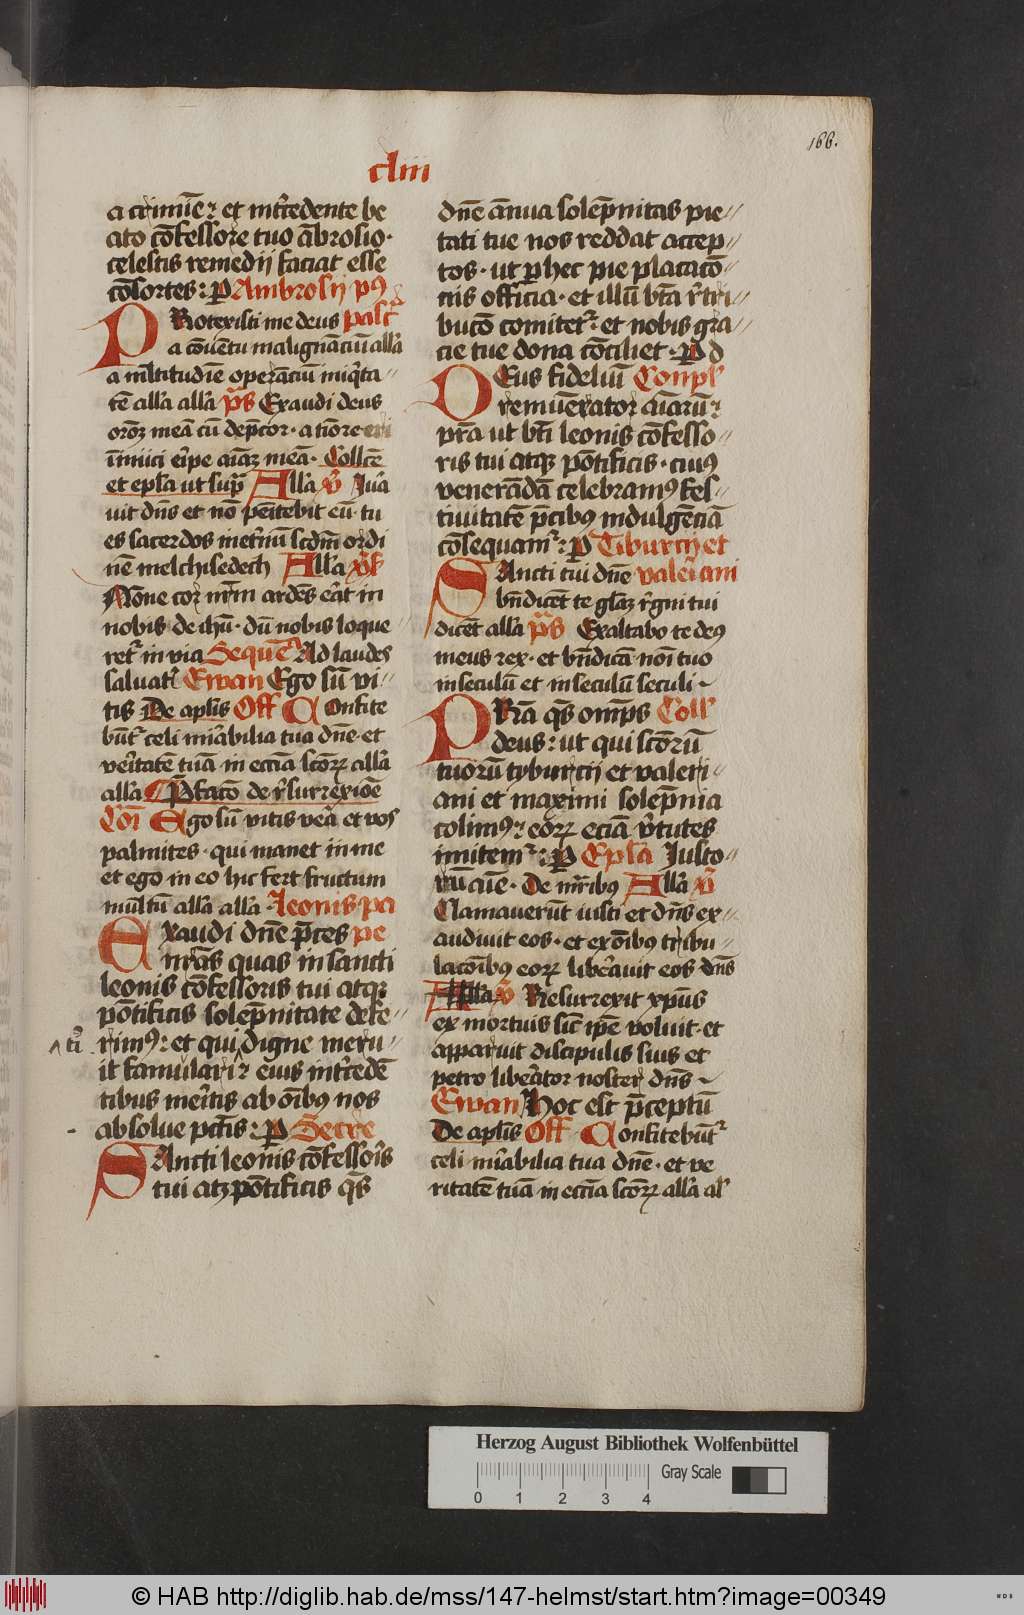 166.
cliii
a crimīe⁊ et int̄cedente be
ato cōfessore tuo ābrosio·
celestis remedij faciat esse
cōsortes: P Ambrosij
Rotexisti me deus pasc
a cōuētu malignāciū all'a
a m̄ltitudīe operāciū iniq̄ta
tē all'a all'a p̄s Exaudi deus
meā cū dep̄cor· a tiōre
inīmici eripe aīaz meā· Collcē
et epl'a ut sup̄ All'a v̄ Iura
uit dn̄s et nō penitebit eū· tu
es sacerdos met'nū scdm̄ ordi
nē melchisedech All'a
Nōne cor nr̄m ardēs erat in
nobis de ihū· dū nobis loque
ret' in via Sequē Ad laudes
saluat' Ewan Ego sū vi
tis De apl'is Off Confite
būt' celi mirabilia tua dn̄e· et
veritatē tuā in eccīa scōr̄ all'a
all'a P̄facō de r̄surrexiōe
Cōi Ego sū vitis vera et vos
palmites· qui manet in me
et ego in eo hic fert fructum
multū all'a all'a· Leonis pa
Exaudi dn̄e p̄ces pe
nr̄as quas in sancti
leonis cōfessoris tui atqꝫ
pōtificis solēpnitate defe
rimꝰ: et qui digne meru
it famulari⁊ eius int̄cedē
tibus meritis ab oībꝰ nos
absolue pctīs: P Secre
Sancti leonis cōfessoris
tui atqꝫ pōtificis q̄s
dn̄e ānua solēpnitas pie
tati tue nos reddat accep
tos· ut p hec pie placacō
nis officia· et illū bt̄a r̄tri
bucō comitet'⁊ et nobis gra
cie tue dona cōciliet· P d
Deus fideliū Compl'
remunerator aīarū⁊
pr̄a ut bt̄i leonis cōfesso
ris tui atqꝫ pōtificis· cuiꝰ
venerādā celebramꝰ fes
tiuitatē p̄cibꝰ indulgēciā
cōsequam'⁊ P Tiburcij et
Sancti tui dn̄e valeriani
bn̄dicēt te gl'az r̄gni tui
dicēt all'a p̄s Exaltabo te deꝰ
meus rex· et bn̄dicā noī tuo
in seculū et in seculū seculi
Pr̄a q̄s omp̄s Coll'
deus: ut qui scōrū
tuorū tyburcij et valeri
ani et maximi solēpnia
colimꝰ⁊ eōr̄ eciā v̄tutes
imitem'⁊ P Epl'a Iusto
rū aīe· De mr̄ibꝰ All'a v̄
Clamauerūt iusti et dn̄s ex
audiuit eos· et ex oībꝰ tribu
lacōibꝰ eor̄ liberauit eos dn̄s
All'a v̄ Resurrexit xpūs
ex mortuis sic ip̄e voluit· et
apparuit discipulis suis et
petro liberator noster dn̄s
Ewan Hoc est p̄ceptū
De apl'is Off Confitebūt'
celi mirabilia tua dn̄e· et ve
ritatē tuā in eccīa scōr̄ all'a al'
Herzog August Bibliothek Wolfenbüttel
Gray Scale
0 1 2 3 4
© HAB http://diglib.hab.de/mss/147-helmst/start.htm?image=00349